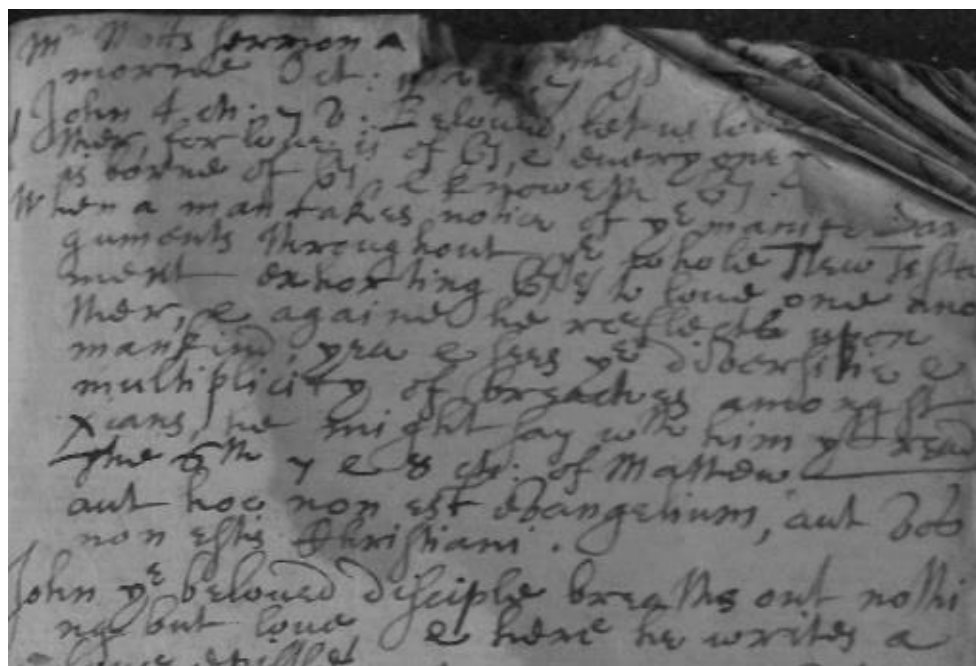 Mr Notts sermon a
morne Oct:
1 John 4 ch: 7 v: Beloued, let us loue
ther, for loue is of G, & euery one
is borne of G, & knoweth G.
When a man takes notice of ye manifold ar
guments throughout ye whole New Testa
ment exhorting to loue one ano
ther, & againe he reflects upon
mankind, yea & sees ye diversitie &
multiplicity of breaches amongst
Xians, he might say wth him yt read
the 5th 7 & 8 ch: of Mathew
aut hoc non est evangelium, aut vos
non estis Christiani.
John ye beloued disciple breaths out nothi
ng but loue & here he writes a
loue epistle